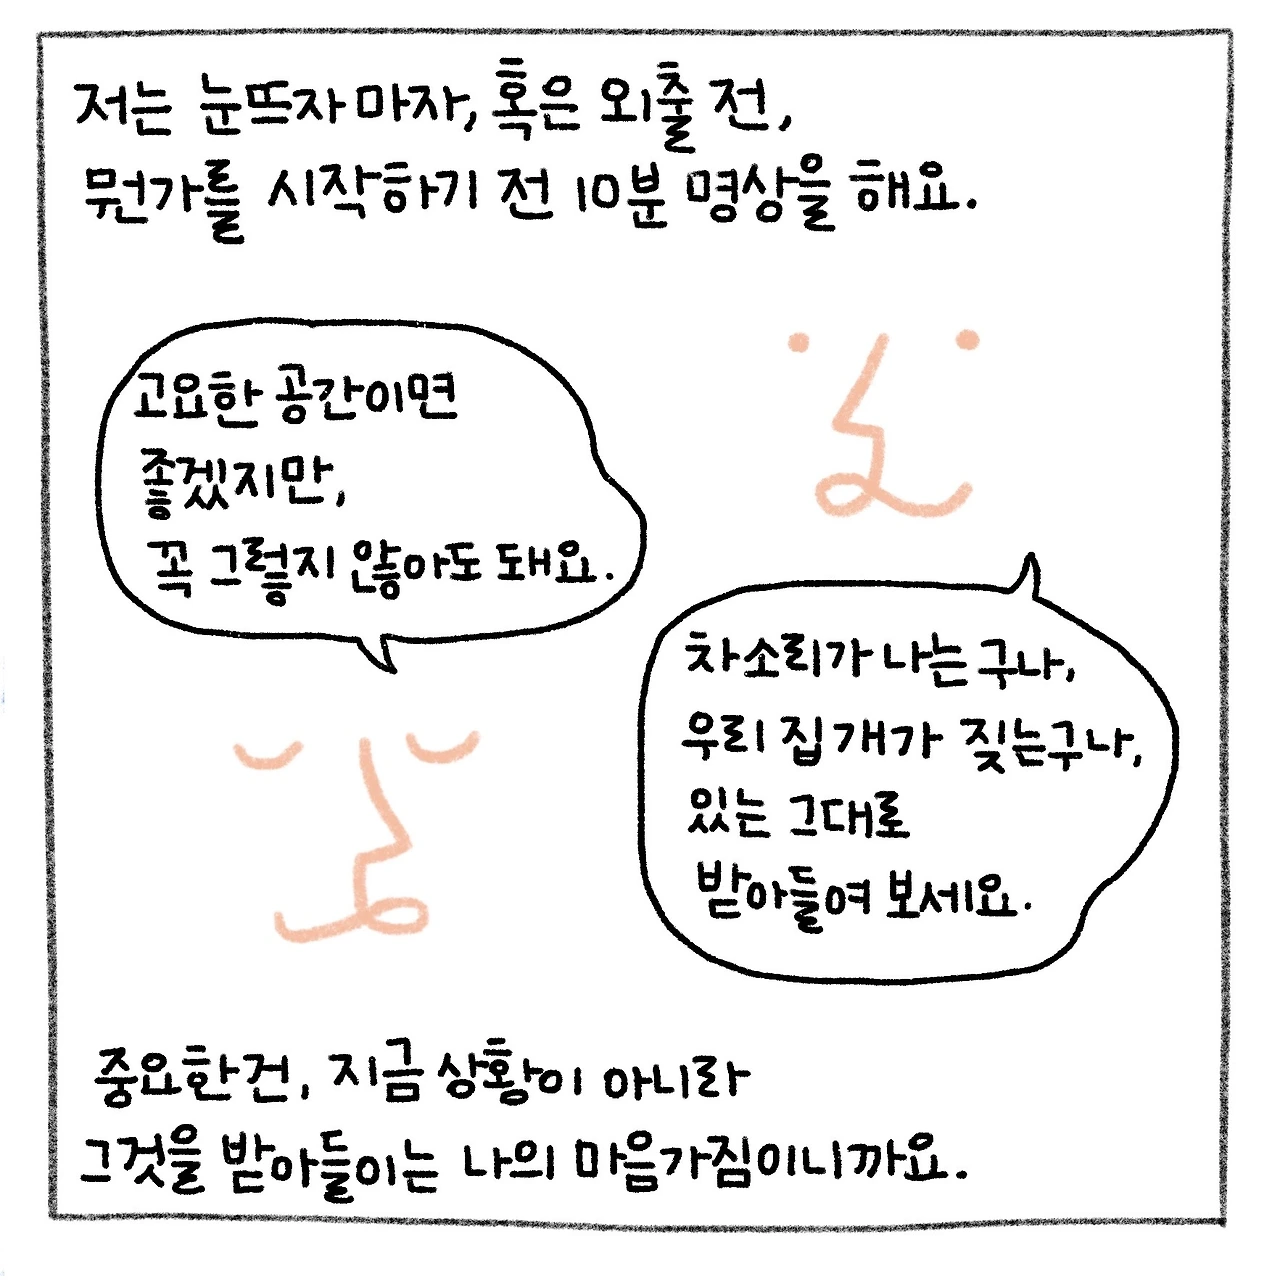 저는 눈뜨자마자, 혹은 외출 전,
뭔가를 시작하기 전 10분 명상을 해요.
고요한 공간이면
좋겠지만,
꼭 그렇지 않아도 돼요.
차소리가 나는구나,
우리 집 개가 짖는구나,
있는 그대로
받아들여 보세요.
중요한건, 지금 상황이 아니라
그것을 받아들이는 나의 마음가짐이니까요.